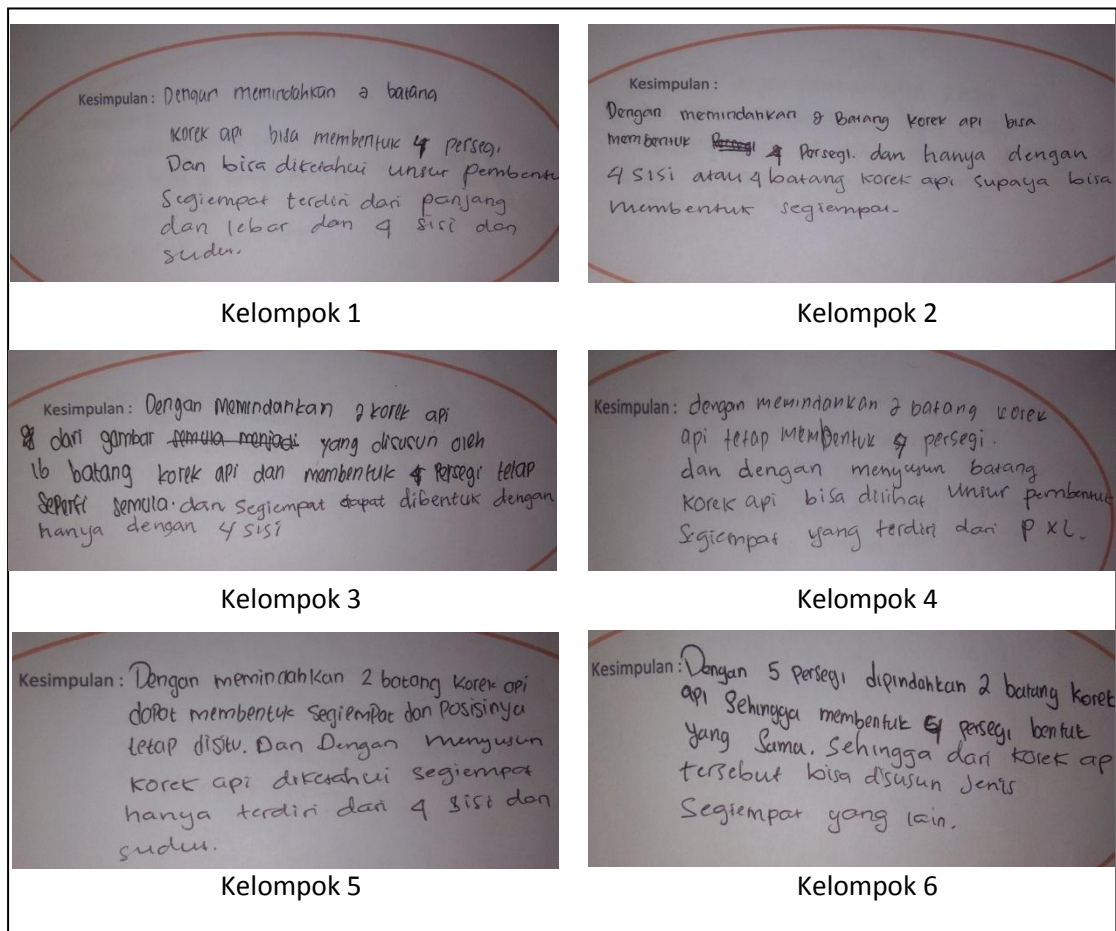 Kesimpulan : Dengan memindahkan 2 batang
korek api bisa membentuk 4 persegi.
Dan bisa diketahui unsur pembentu
Segiempat terdiri dari panjang
dan lebar dan 4 sisi dan
sudut.
Kelompok 1
Kesimpulan :
Dengan memindahkan 2 Batang korek api bisa
membentuk 4 Persegi. dan hanya dengan
4 sisi atau 4 batang korek api supaya bisa
membentuk segiempat.
Kelompok 2
Kesimpulan : Dengan Memindahkan 2 korek api
dari gambar semula menjadi yang disusun oleh
16 batang korek api dan membentuk 4 Persegi tetap
seperti semula. dan segiempat dapat dibentuk dengan
hanya dengan 4 sisi
Kelompok 3
Kesimpulan : dengan memindahkan 2 batang korek
api tetap Membentuk persegi.
dan dengan menyusun batang
korek api bisa dilihat unsur pembentuk
Segiempat yang terdiri dari P x L.
Kelompok 4
Kesimpulan : Dengan memindahkan 2 batang korek api
dapat membentuk segiempat dan Posisinya
tetap disitu. Dan Dengan menyusun
korek api diketahui segiempat
hanya terdiri dari 4 sisi dan
sudut.
Kelompok 5
Kesimpulan : Dengan 5 persegi dipindahkan 2 batang korek
api Sehingga membentuk persegi bentuk
yang Sama. Sehingga dari korek ap
tersebut bisa disusun Jenis
Segiempat yang lain.
Kelompok 6